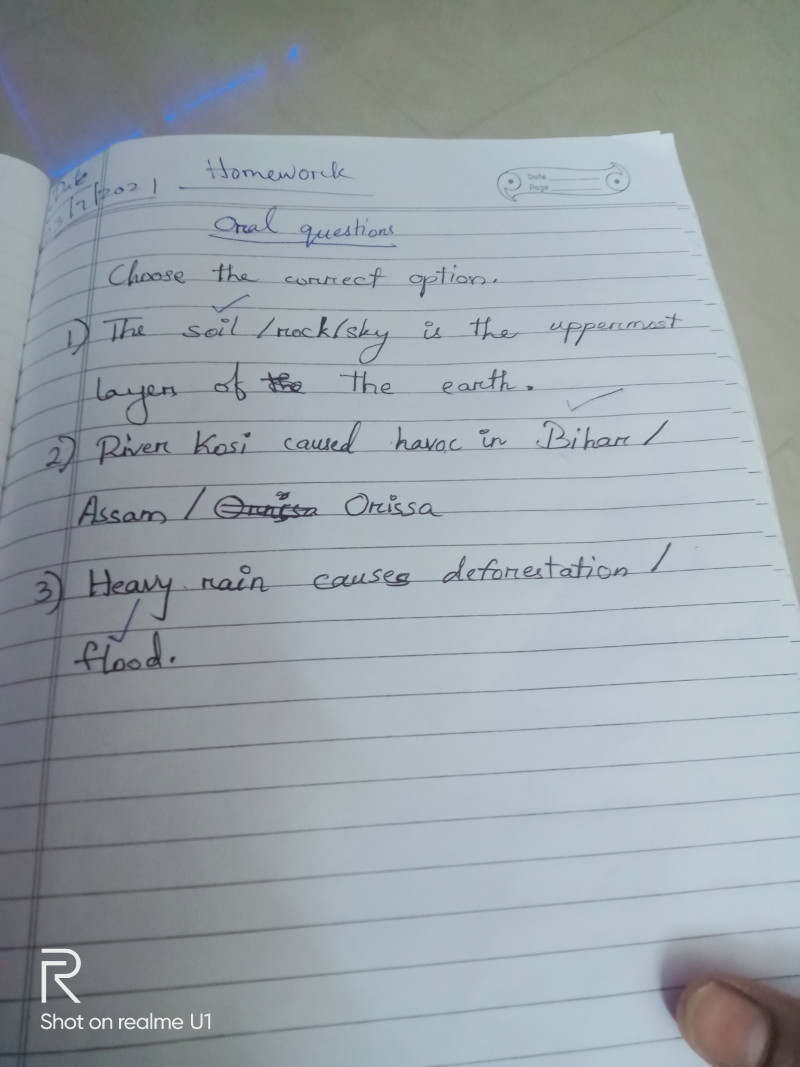 Date
/7/2021
Homework
Date
Page
Oral questions
Choose the correct option.
1) The soil /rock/sky is the uppermost
layer of the the earth.
2) River Kosi caused havoc in Bihar /
Assam / Orissa Orissa
3) Heavy rain causes deforestation /
flood.
R
Shot on realme U1